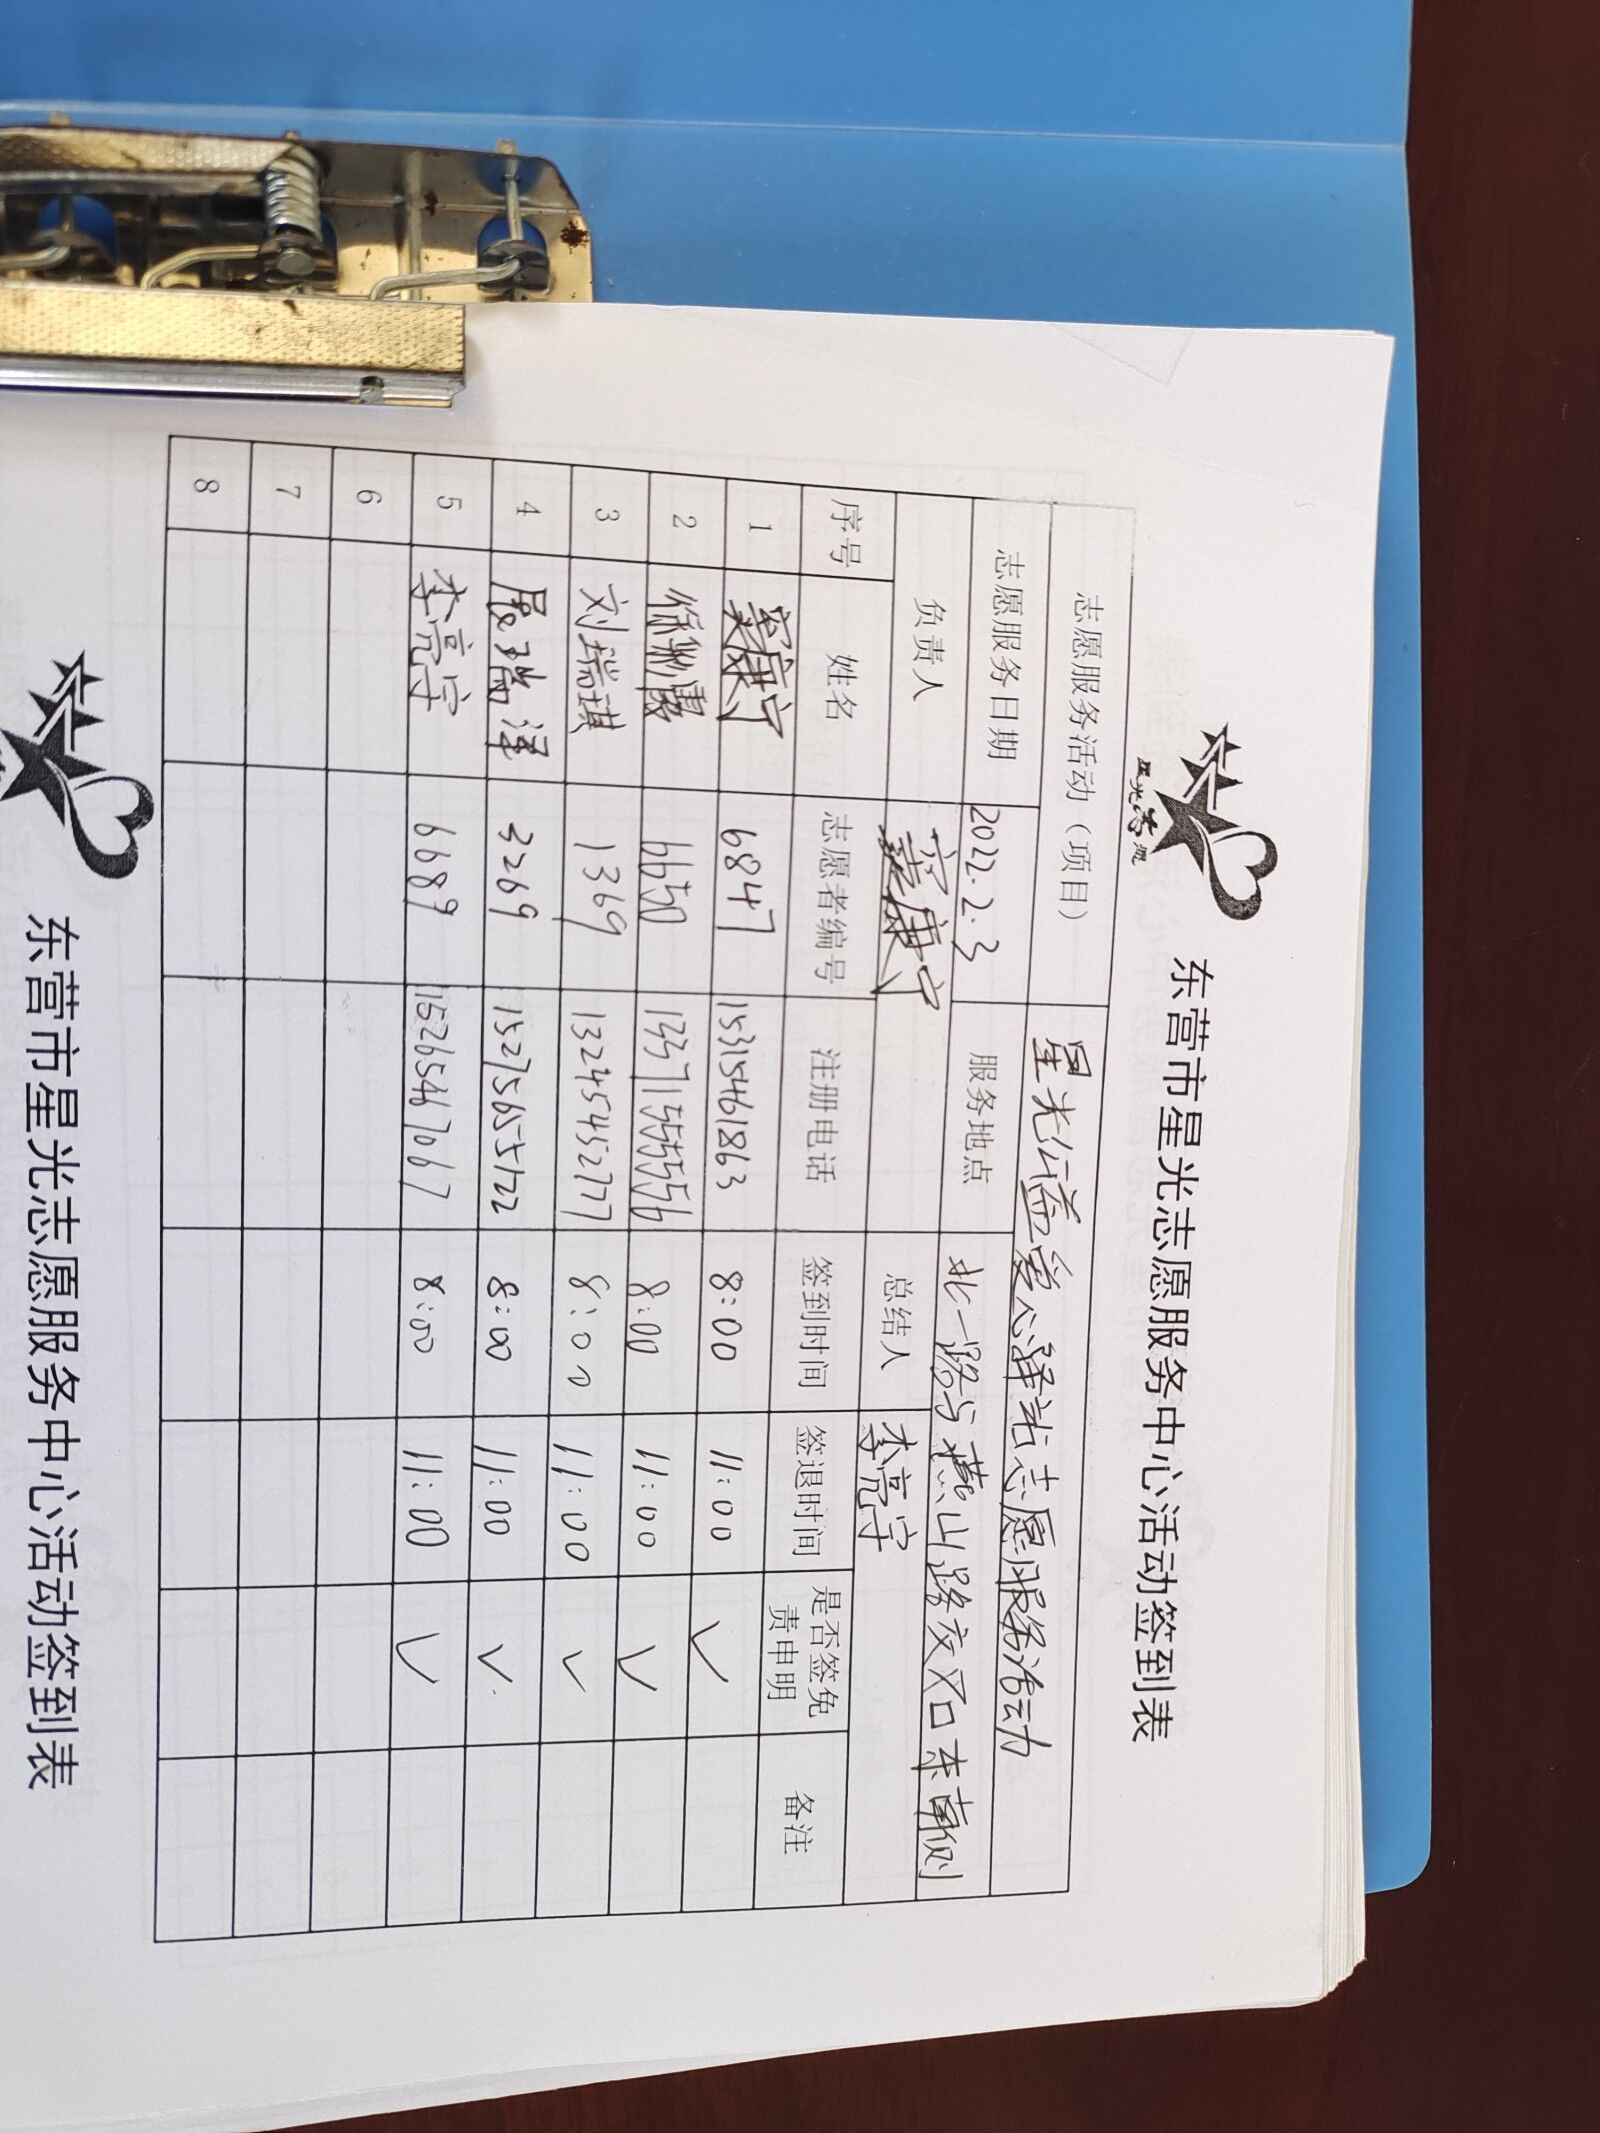 东营市星光志愿服务中心活动签到表
志愿服务活动（项目） 星光公益爱心驿站志愿服务活动
志愿服务日期 2022.2.3 服务地点 北一路与燕山路交叉口东南侧
负责人 康宁 总结人 李亮宇
序号 姓名 志愿者编号 注册电话 签到时间 签退时间 是否签免责申明 备注
1 康宁 6847 15315461863 8:00 11:00 ✓
2 徐 6650 13371555556 8:00 11:00 ✓
3 刘瑞琪 1369 13245545277 8:00 11:00 ✓
4 瑞泽 3269 15275655122 8:00 11:00 ✓
5 李亮宇 6689 15265467067 8:00 11:00 ✓
6
7
8
东营市星光志愿服务中心活动签到表